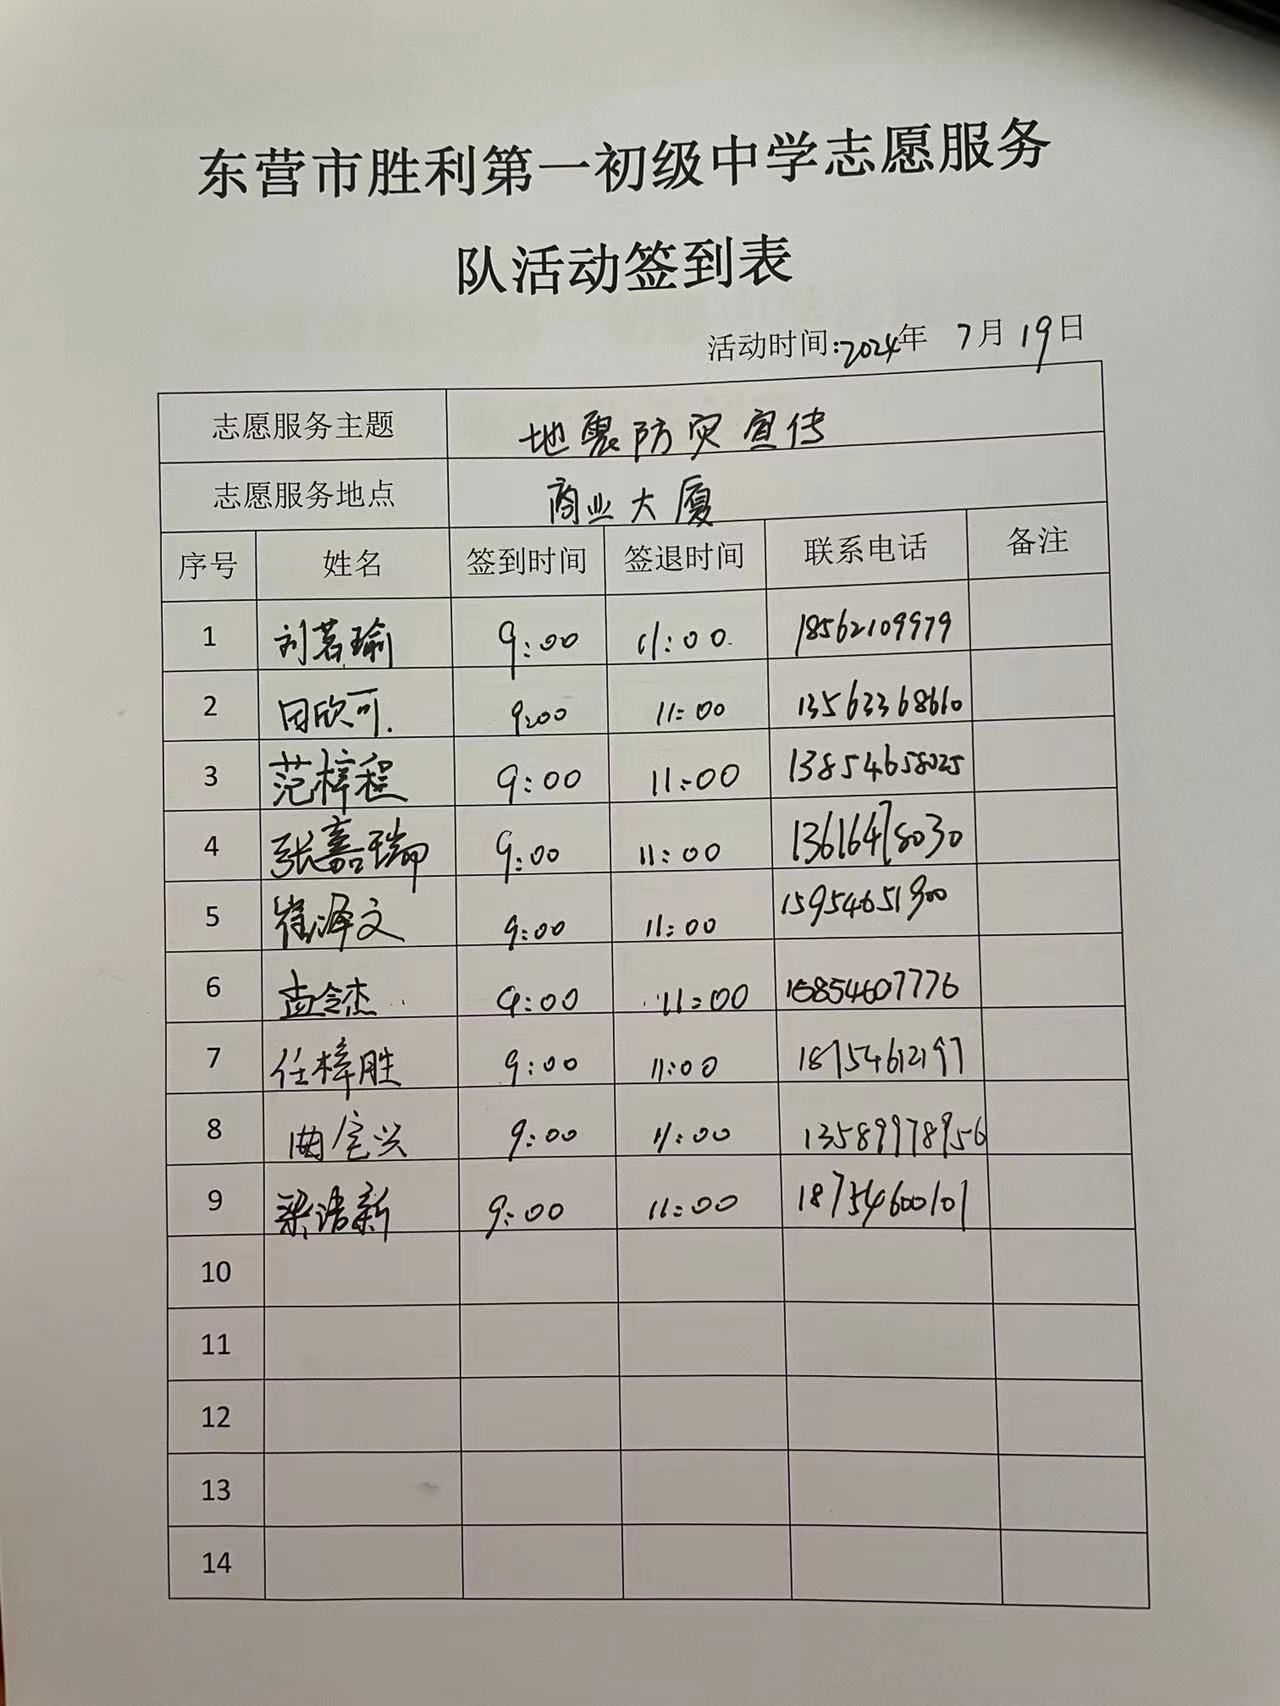 东营市胜利第一初级中学志愿服务
队活动签到表
活动时间:2024年 7月19日
志愿服务主题 地震防灾宣传
志愿服务地点 商业大厦
序号 姓名 签到时间 签退时间 联系电话 备注
1 刘茗瑜 9:00 11:00 18562109979
2 田欣可 9:00 11:00 13563368610
3 范梓程 9:00 11:00 13854658025
4 张嘉瑞 9:00 11:00 13616478030
5 崔泽文 9:00 11:00 15954651900
6 孟令杰 9:00 11:00 15854607776
7 任梓胜 9:00 11:00 18754612197
8 曲定兴 9:00 11:00 13589978956
9 梁浩新 9:00 11:00 18754600101
10
11
12
13
14